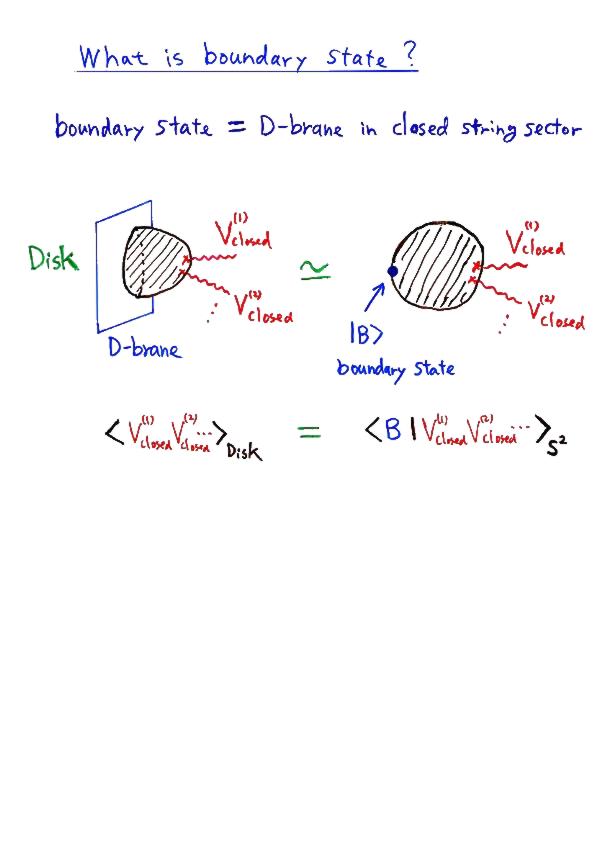 What is boundary state ?
boundary state = D-brane in closed string sector
Disk
V^{(1)}_{closed}
V^{(2)}_{closed}
⋮
D-brane
≃
V^{(1)}_{closed}
V^{(2)}_{closed}
⋮
|B>
boundary state
<V^{(1)}_{closed} V^{(2)}_{closed} ...>_{Disk} = <B|V^{(1)}_{closed} V^{(2)}_{closed} ...>_{S^2}